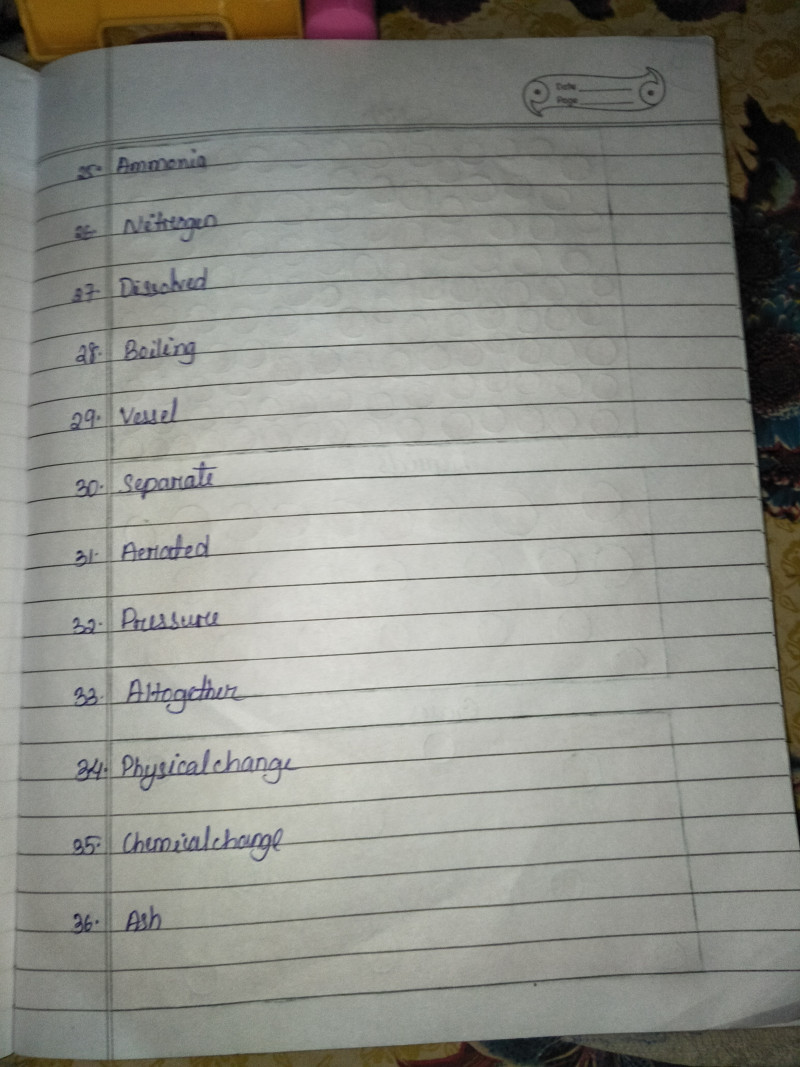 Date
Page
25. Ammonia
26. Nitrogen
27. Dissolved
28. Boiling
29. Vessel
30. Separate
31. Aeriated
32. Pressure
33. Altogether
34. Physical change
35. Chemical change
36. Ash